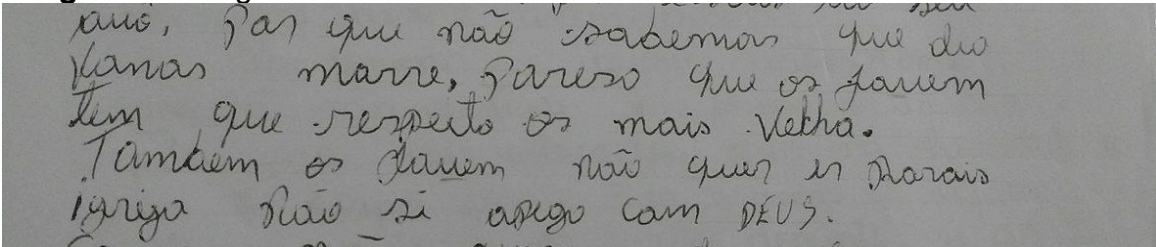 avô, Por que não sabemos que dio
vamos morre, Pareso que os jovem
tem que respeito os mais velha.
Tambem os jovem não quer ir Parais
igreja não si apego com DEUS.